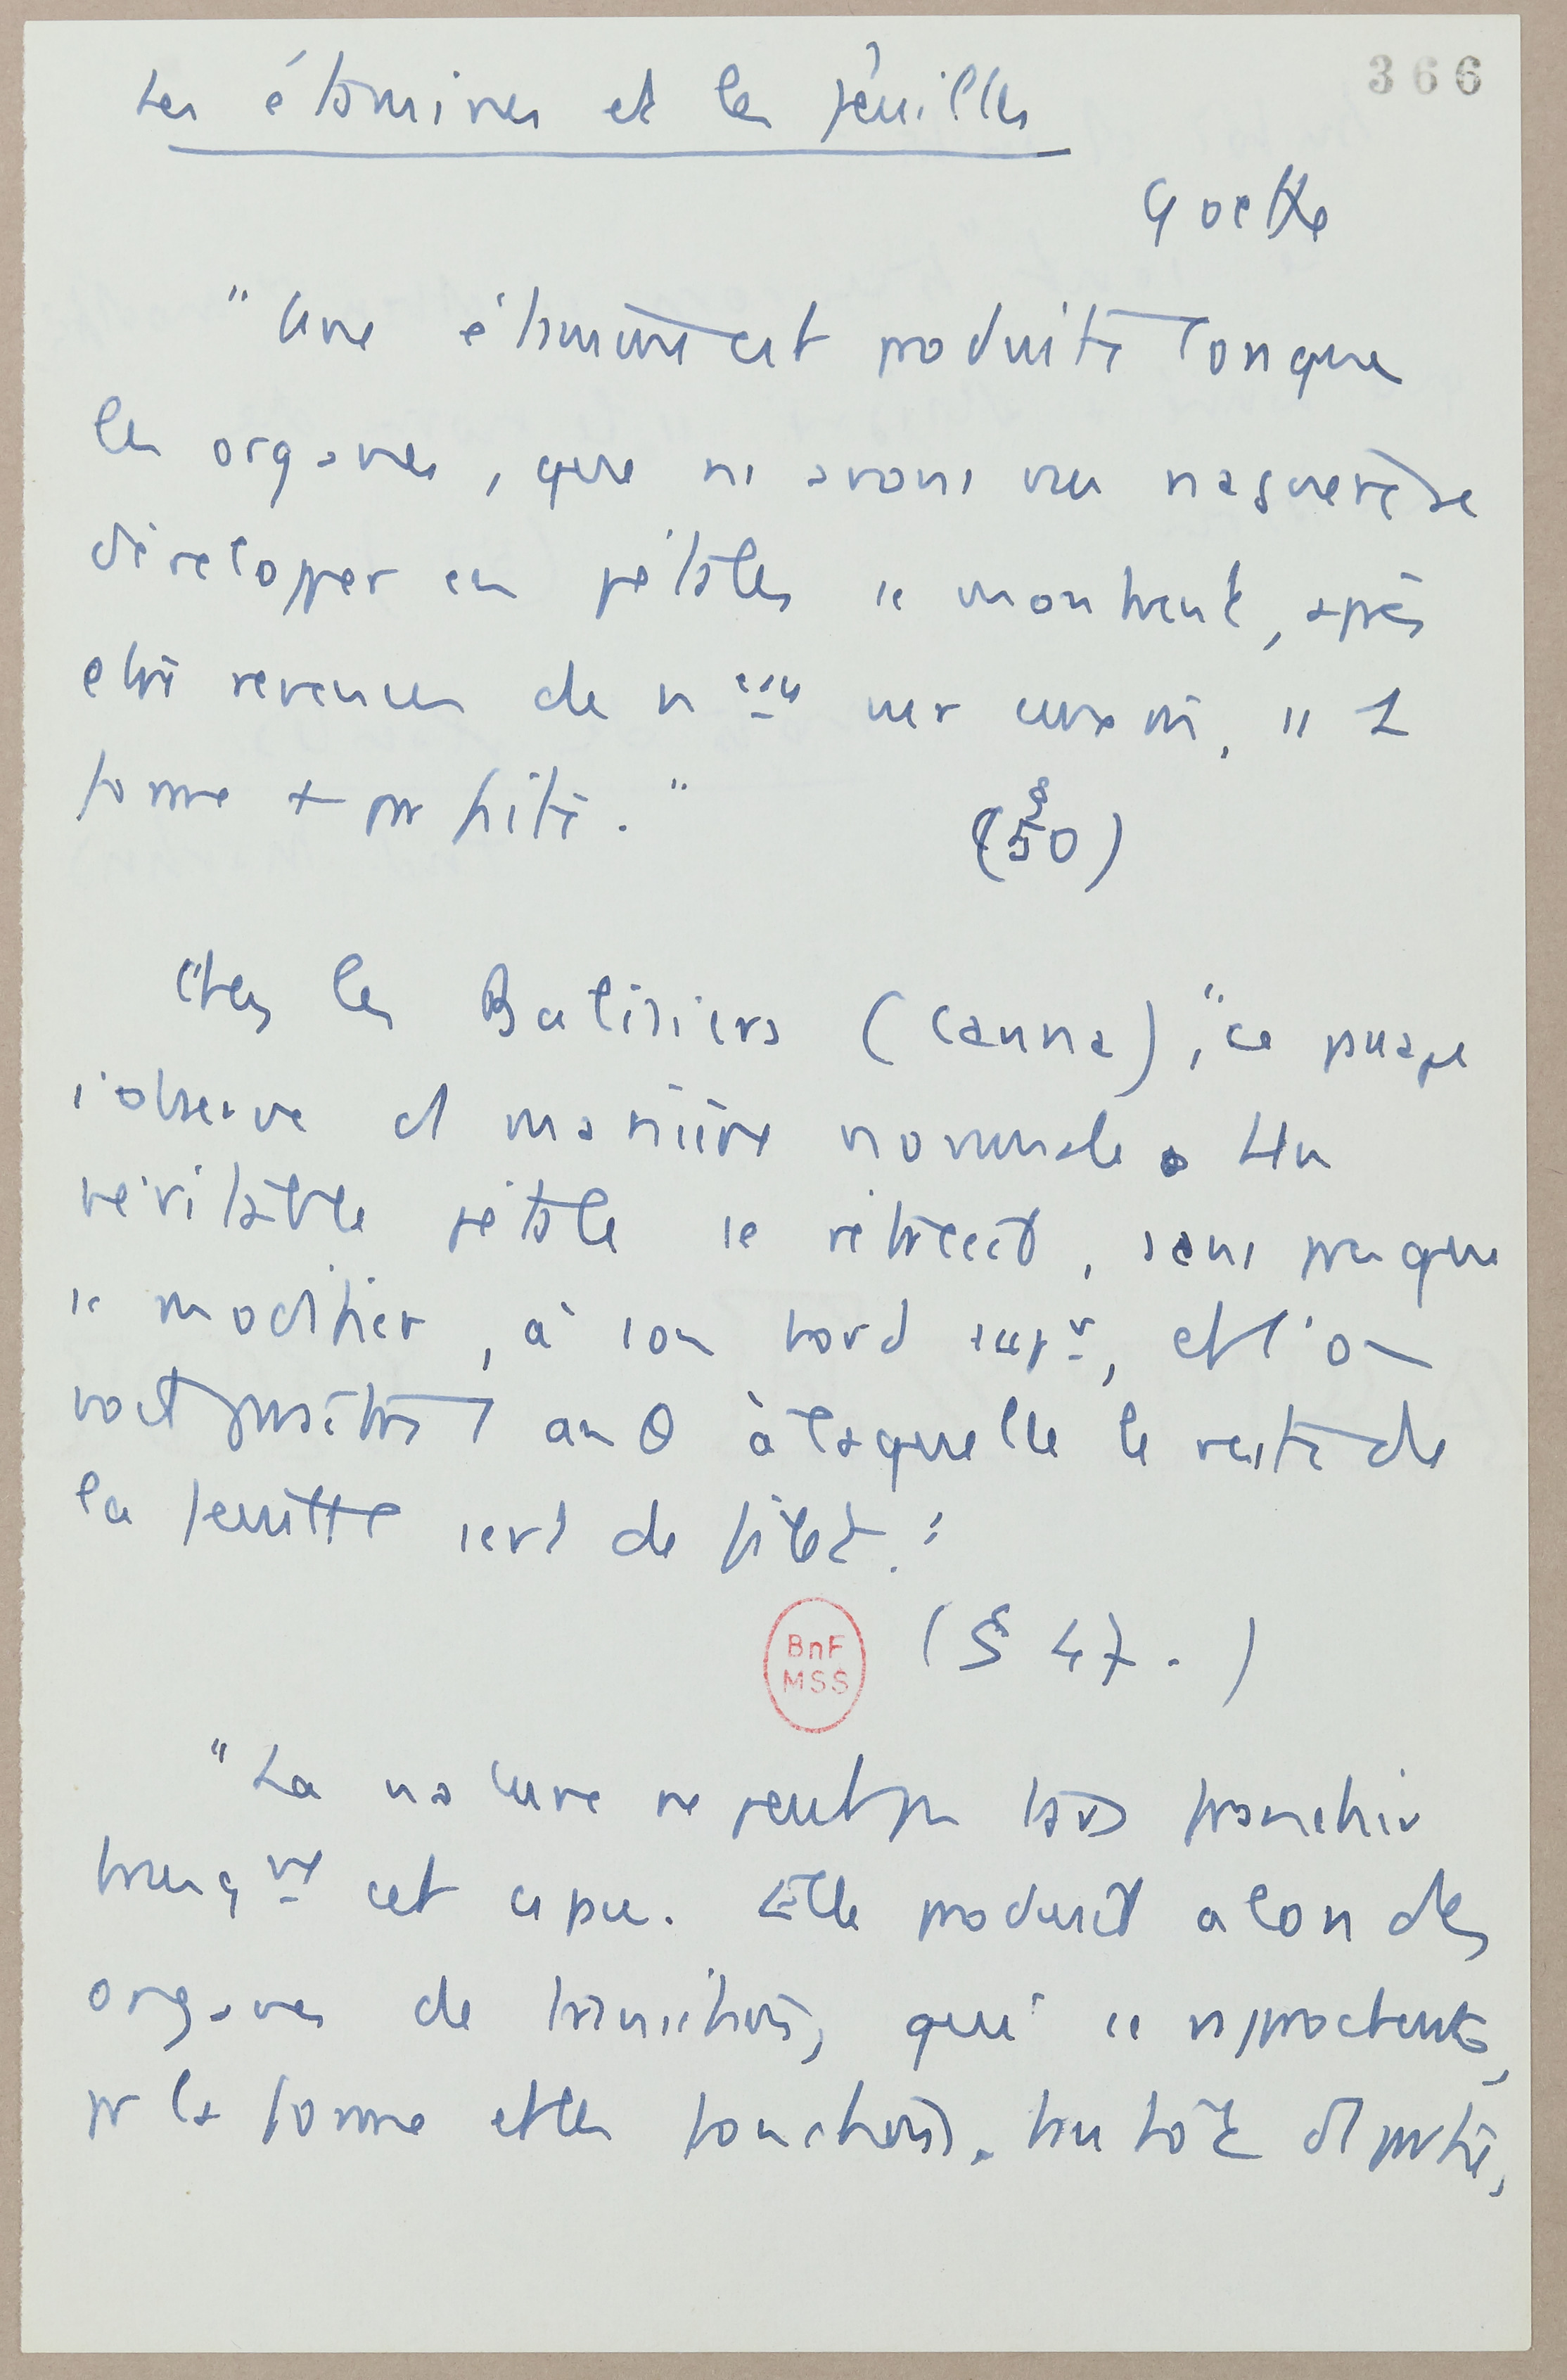 366
Les étamines et les feuilles
Goethe
"Une étamine est produite lorsque
les organes, que ns avons vu naguère se
développer en pétales se montrent, après
être revenus de n eau une, ss 1
forme + parfaite."
(§ 50)
Chez les Balisiers (Canna), "ce passage
s'observe d manière normale. Un
véritable pétale se rétrécit, sans presque
se modifier, à son bord supr, et l'on
voit paraître 1 an θ à laquelle le reste de
la feuille sert de filet."
BnF
MSS
(§ 47.)
"La nature ne peut pas franchir
brusqnt cet espace. Elle produit alors des
organes de transition, qui se rapprochent,
pr la forme et les fonctions, tantôt d parties,